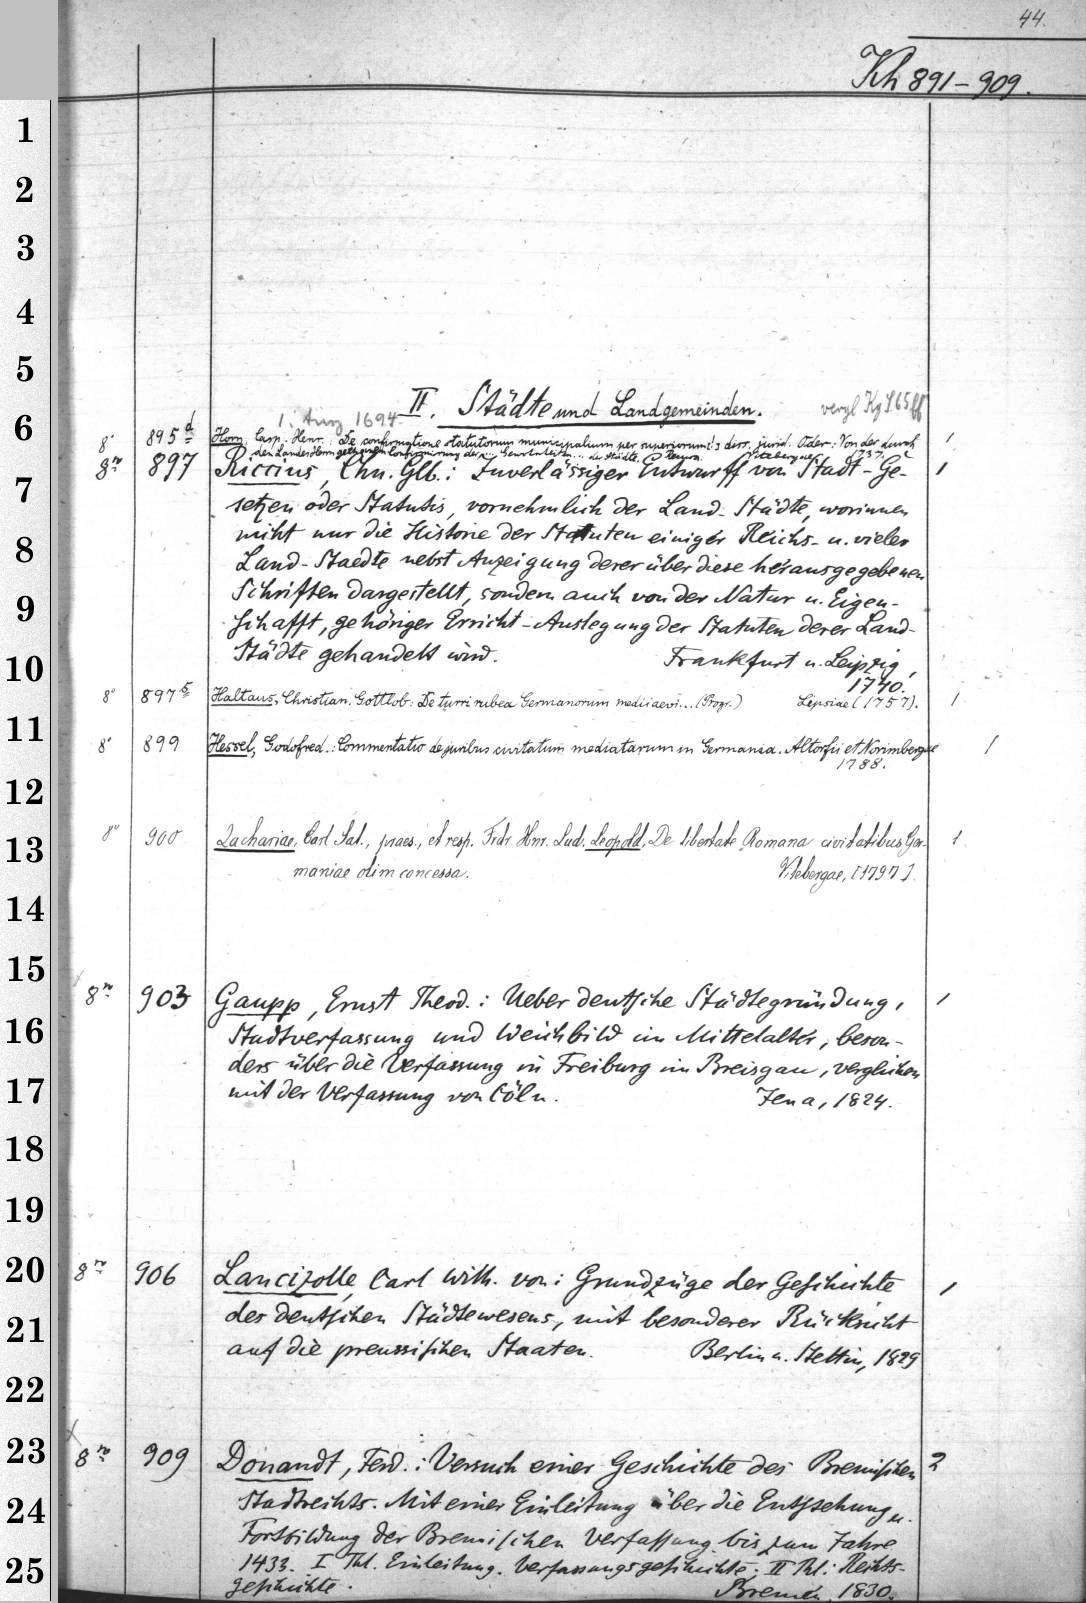 44.
Kh 891-909.
II. Städte und Landgemeinden. vergl Kg 165 ff
1. Aug 1694
8° 895 d Horn, Casp. Henr.: De confirmatione statutorum municipalium per superiorum: diss. jurid. Oder: Von der durch 1
den Landes Herrn Confirmirung der der Städte. 1737.
8vo 897 Riccius, Chn. Glb.: Zuverlässiger Entwurff von Stadt-Ge- 1
setzen oder Statutis, vornehmlich der Land-Städte, worinnen
nicht nur die Historie der Statuten einiger Reichs- u. vieler
Land-Staedte nebst Anzeigung derer über diese herausgegebenen
Schriften dargestellt, sondern auch von der Natur u. Eigen-
schafft, gehöriger Erricht-Auslegung der Statuten derer Land-
Städte gehandelt wird. Frankfurt u. Leipzig,
1740.
8° 897 5 Haltaus, Christian. Gottlob: De turri rubea Germanorum medii aevi... (Progr.) Lipsiae (1757). 1
8° 899 Hessel, Godofred.: Commentatio de juribus civitatum mediatarum in Germania. Altorfii et Norimbergae 1
1788.
8° 900 Zachariae, Carl Sal., praes., et resp. Frdr. Hnr. Lud. Leopold, De libertate Romana civitatibus Ger- 1
maniae olim concessa. Vitebergae, [1797].
8vo 903 Gaupp, Ernst Theod.: Ueber deutsche Städtegründung, 1
Stadtverfassung und Weichbild im Mittelalter, beson-
ders über die Verfassung in Freiburg im Breisgau, verglichen
mit der Verfassung von Cöln. Jena, 1824.
8vo 906 Lancizolle, Carl Wilh. von: Grundzüge der Geschichte 1
des deutschen Städtewesens, mit besonderer Rücksicht
auf die preussischen Staaten. Berlin u. Stettin, 1829
8vo 909 Donandt, Ferd.: Versuch einer Geschichte des Bremischen 2
Stadtrechts. Mit einer Einleitung über die Entstehung u.
Fortbildung der Bremischen Verfassung bis zum Jahre
1433. I Thl. Einleitung. Verfassungsgeschichte. II Thl: Rechts-
geschichte. Bremen, 1830.
1
2
3
4
5
6
7
8
9
10
11
12
13
14
15
16
17
18
19
20
21
22
23
24
25